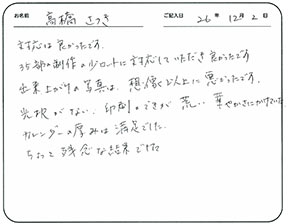 お名前 高橋 さつき ご記入日 26年 12月 2日
対応は良かったです。
35部の制作の少ロートに対応していただき良かったです
出来上がりの写真は、想像以上に悪かったです。
光沢がない、印刷のできが荒い、華やかさにかけていた
カレンダーの厚みは満足でした。
ちょっと残念な結果でした